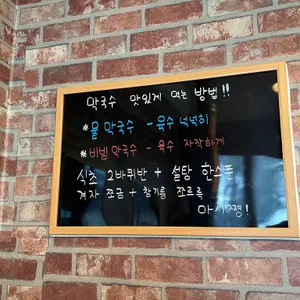 막국수 맛있게 먹는 방법!!
*물 막국수 - 육수 넉넉히
*비빔 막국수 - 육수 자작하게
식초 2바퀴반 + 설탕 한스푼
겨자 쪼금 + 참기름 쪼르륵